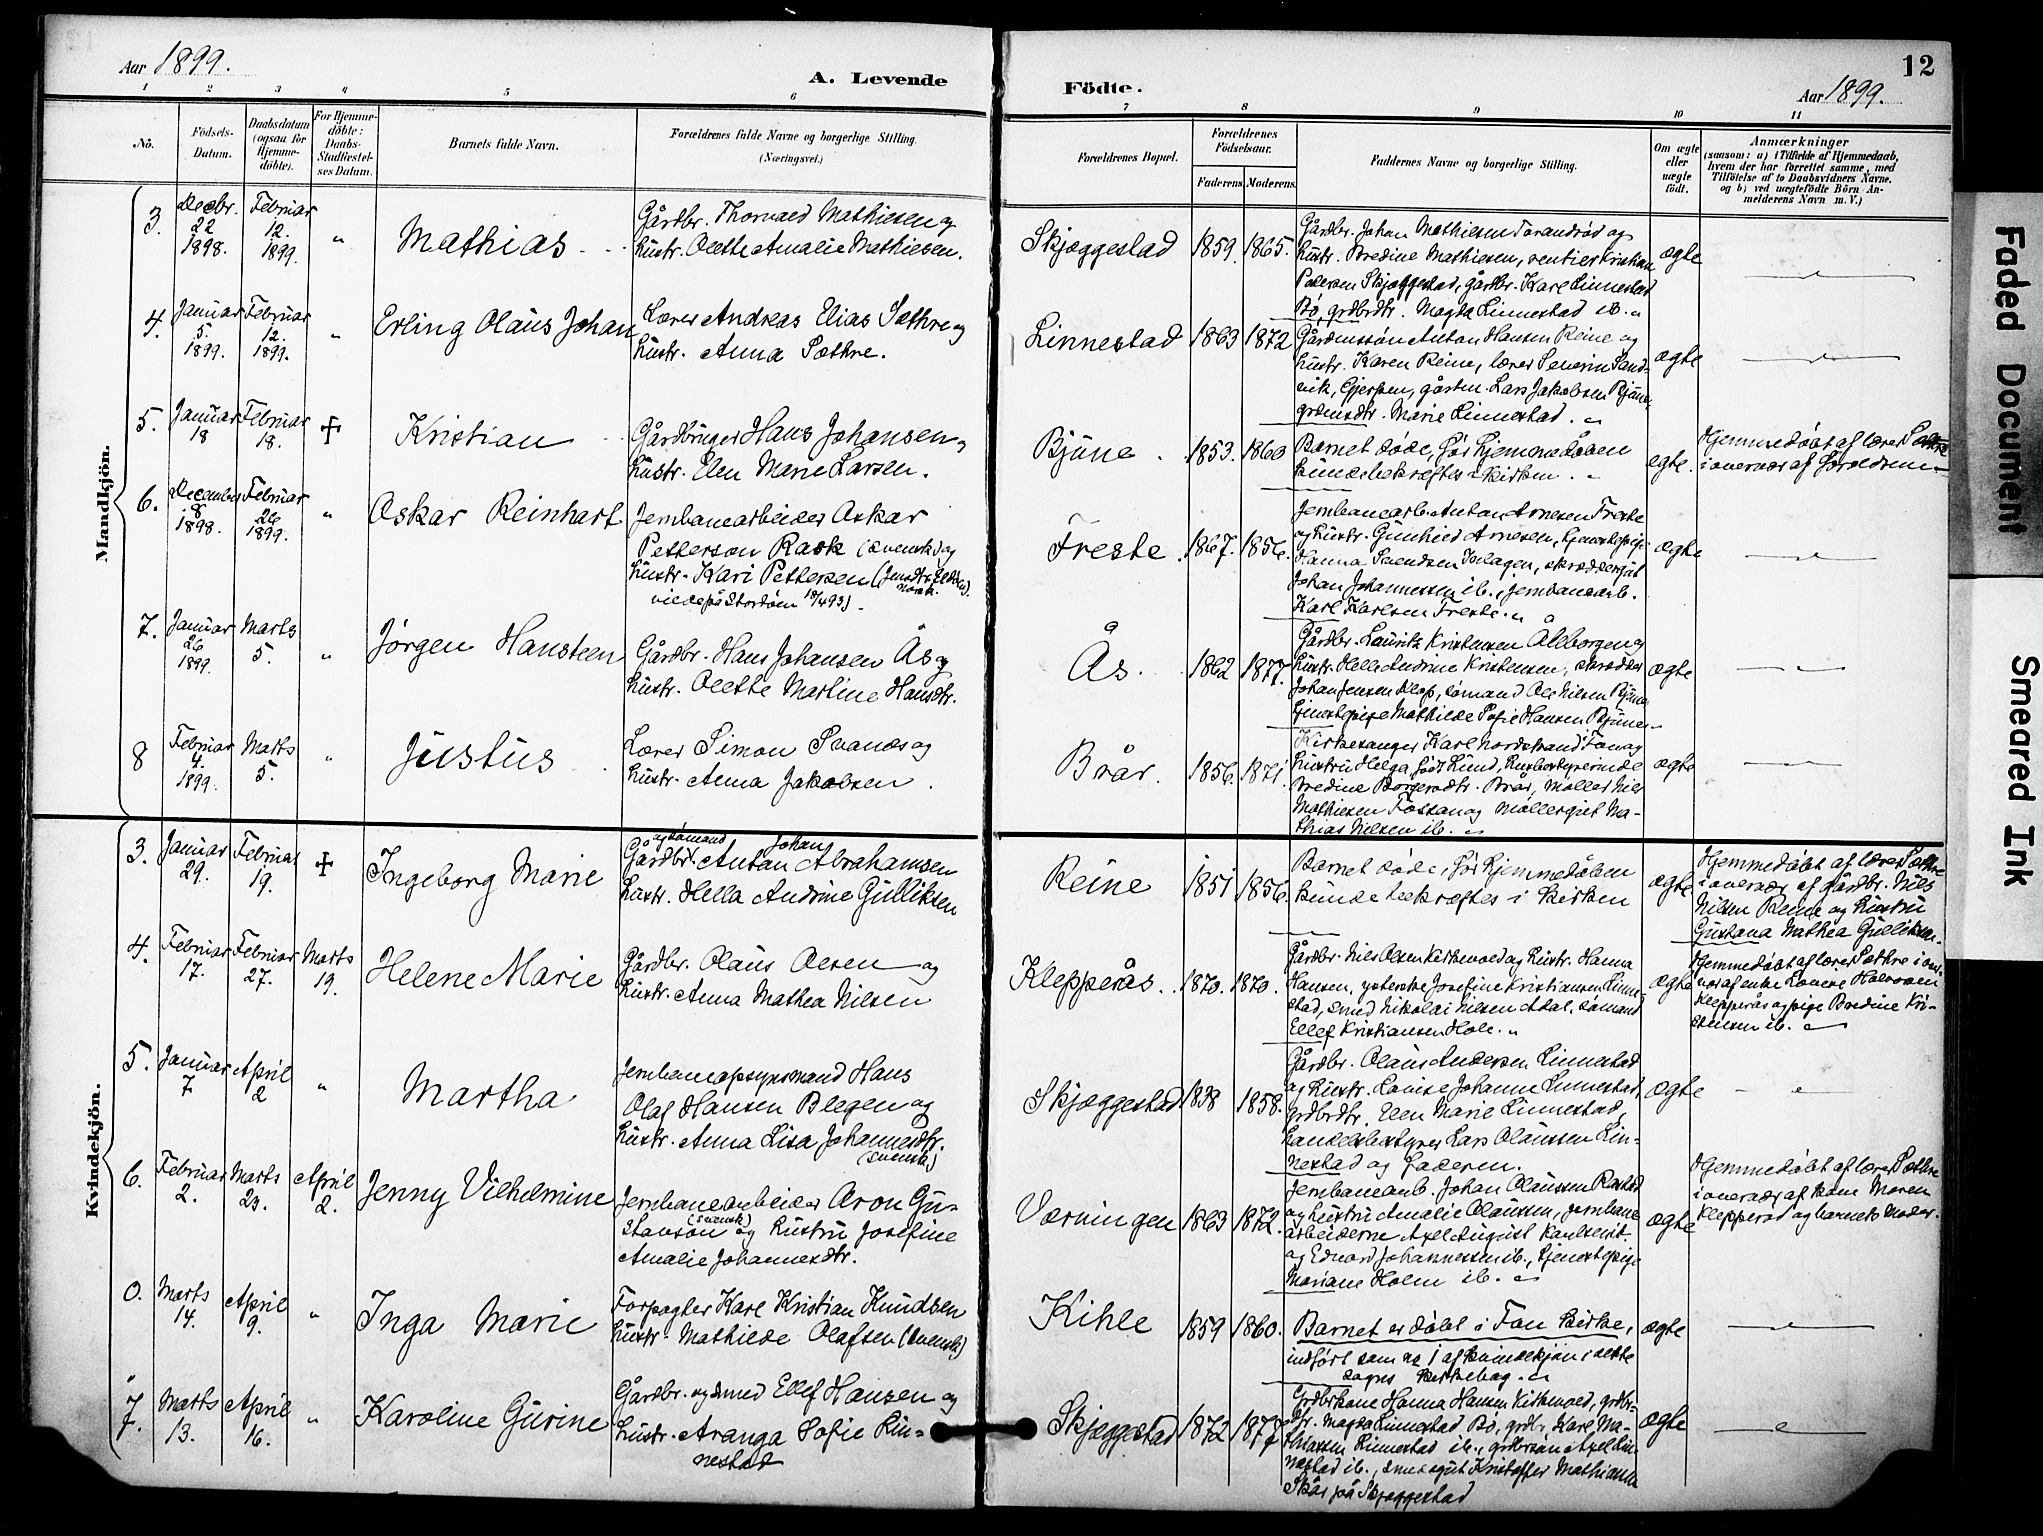 Aar 1899.
A. Levende
Födte.
12
Aar 1899.
1 2 3 4 5 6 7 8 9 10 11
No.
Födsels-
Datum.
Daabsdatum
(ogsaa for
Hjemme-
döbte).
For Hjemme-
döbte:
Daabs-
Stadfæstel-
ses Datum.
Barnets fulde Navn.
Forældrenes fulde Navne og borgerlige Stilling.
(Næringsvei.)
Forældrenes Bopæl.
Forældrenes
Födselsaar.
Faderens. Moderens.
Faddernes Navne og borgerlige Stilling.
Om ægte
eller
uægte
födt.
Anmærkninger
(saasom: a) i Tilfælde af Hjemmedaab,
hvem der har forrettet samme, med
Tilföielse af to Daabsvidners Navne,
og b) ved uægtefödte Börn An-
melderens Navn m. V.)
Mandkjön.
3. Decbr. 22 1898. Februar 12. 1899. " Mathias
Gårdbr. Thorvald Mathiesen og
hustr. Olette Amalie Mathiesen.
Skjæggestad 1859. 1865.
Gårdbr. Johan Mathiesen Tørandrød og
hustr. Bredine Mathiesen, rentier Kristian
Pedersen Skjæggestad, gårdbr. Karl Linnestad
Bö, grdbrdtr. Magda Linnestad ib. "
ægte
4. Januar 5. 1899. Februar 12. 1899. " Erling Olaus Johan
Lærer Andreas Elias Sæthre og
hustr. Anna Sæthre.
Linnestad 1863 1872
Gårdmssön Anton Hansen Reine og
hustr. Karen Reine, lærer Severin Sand-
vik, Gjerpen, gårdm. Lars Jakobsen Bjüne,
grdmsdtr. Marie Linnestad. "
ægte
5. Januar 18 Februar 18. + Kristian
Gårdbruger Hans Johansen og
hustr. Elen Marie Larsen.
Bjüne. 1853. 1860
Barnet døde, før hjemmedåben
kunde bekræftes i kirken. "
ægte.
Hjemmedøbt af lærer Sæthre
i overvær af forældrene.
6. December 18 1898. Februar 26 1899. " Oskar Reinhart
Jernbanearbeider Oskar
Petterson Rask (svensk) og
hustr. Kari Pettersen
viede på Stordöen
Freste. 1867. 1856.
Jernbanearb. Anton Arnesen Freste
og hustr. Gunhild Arnesen, tjenestepige
Hanna Svendsen, skræddergut
Johan Johannessen ib., jernbanearb.
Karl Karlsen Freste. "
ægte
7. Januar 26 1899. Marts 5. " Jørgen Hansteen
Gårdbr. Hans Johansen Ås og
hustr. Olette Martine Hansdtr.
Ås. 1862 1877.
Gårdbr. Lauritz Kristensen Ålborgen og
hustr. Helle Andrine Kristensen, skrædder
Johan Jensen Klop, sömand Ole Nilsen Bjüne
tjenestepige Mathilde Sofie Hansen Bjüne.
ægte
8 Februar 4. 1899. Marts 5. " Justus
Lærer Simon Svanæs og
hustr. Anna Jakobsen.
Brår. 1856. 1871.
Kirkesanger Karl Nordstrand Fon og
hustru Helga født Lund, husbestyrerinde
Bredine Borgersdtr. Brår, Møller Nils
Mathiesen Fossan og møllergut Ma-
thias Nilsen ib. "
ægte
Kvindekjön.
3. Januar 29. Februar 19. + Ingeborg Marie
og sømand Johan
Gårdbr. Anton Abrahamsen
hustr. Hella Andrine Gulliksen
Reine 1851 1856.
Barnet døde, før hjemmedåben
kunde bekræftes i kirken
ægte
Hjemmedøbt af lærer Sæthre
i overvær af gårdbr. Nils
Nilsen Reine og hustru
Gustava Mathea Gulliksen.
4. Februar 17. Februar 27. Marts 19. Helene Marie
Gårdbr. Olaus Olsen og
hustr. Anna Mathea Nilsen
Klepperås. 1870. 1870.
Gårdbr. Nils Olsen Kirkevold og hustr. Hanna
Hansen, ysterske Josefine Kristiansen Linne-
stad, smed Nikolai Nilsen Adal, sømand
Ellef Kristiansen Hole. "
ægte
Hjemmedøbt af lærer Sæthre i over-
vær af enke Lovise Halvorsen
Klepperås og pige Bredine Kri-
stensen ib.
5. Januar 7 April 2 " Martha
Jernbaneopsynsmand Hans
Olaf Hansen Blegen og
hustr. Anna Lisa Johannesdtr.
(svensk)
Skjæggestad 1838 1858.
Gårdbr. Olaus Andersen Linnestad
og hustr. Lovise Johanne Linnestad,
grdbrdtr. Elen Marie Linnestad,
handelsbestyrer Lars Olaussen Lin-
nestad og faderen.
ægte
6. Februar 2. Marts 23. April 2. Jenny Vilhelmine
Jernbanearbeider Aron Gu-
stavson (svensk) og hustru Josefine
Amalie Johannesdtr.
Værningen 1863 1872.
Jernbanearb. Johan Olaussen Rastad
og hustru Amalie Olaussen, jernbane-
arbeiderne Axel August Karlkvist
og Edvard Johannessen ib., tjenestepige
Mariane Holm ib. "
ægte
Hjemmedøbt af lærer Sæthre
i overvær af kone Maren
Klepperød og barnets moder.
0. Marts 14. April 9. " Inga Marie
Forpagter Karl Kristian Knudsen
hustr. Mathilde Olafsen (svensk)
Kihle 1859 1860.
Barnet er døbt i Fon kirke,
indført som no 1 af kvindekjön i dette
sogns kirkebog. "
ægte
7. Marts 13. April 16. " Karoline Gurine
Gårdbr. og smed Ellef Hansen og
hustr. Aranga Sofie Lin-
nestad
Skjæggestad 1872 1877
Grdbrkone Hanna Hansen Kirkevold, grdbr-
dtr. Magda Linnestad Bö, grdbr. Karl Ma-
thiassen Linnestad ib., grdbrsön Axel Lin-
nestad ib., smedegut Kristoffer Mathiassen
Skår på Skjæggestad
ægte
Faded Document
Smeared Ink